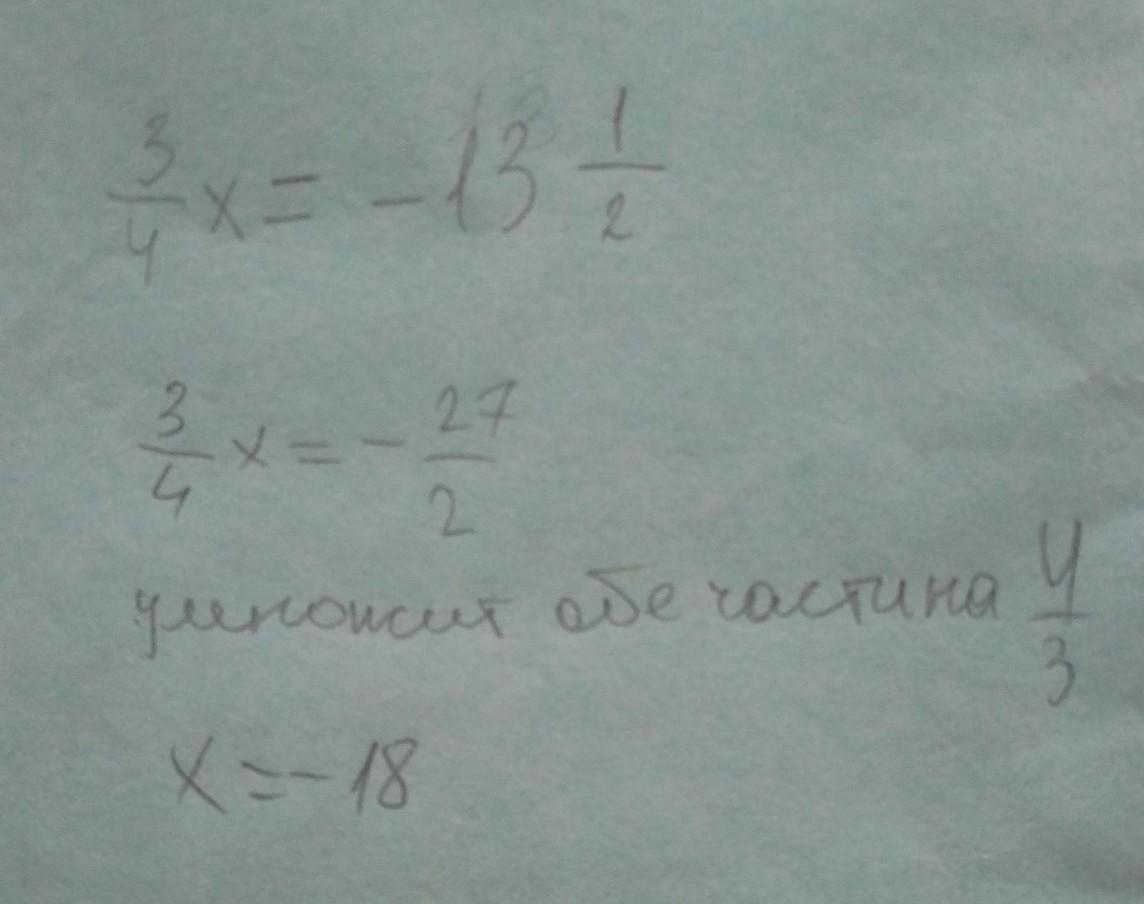 3/4 x = -13 1/2
3/4 x = - 27/2
умножит обе части на 4/3
x = -18